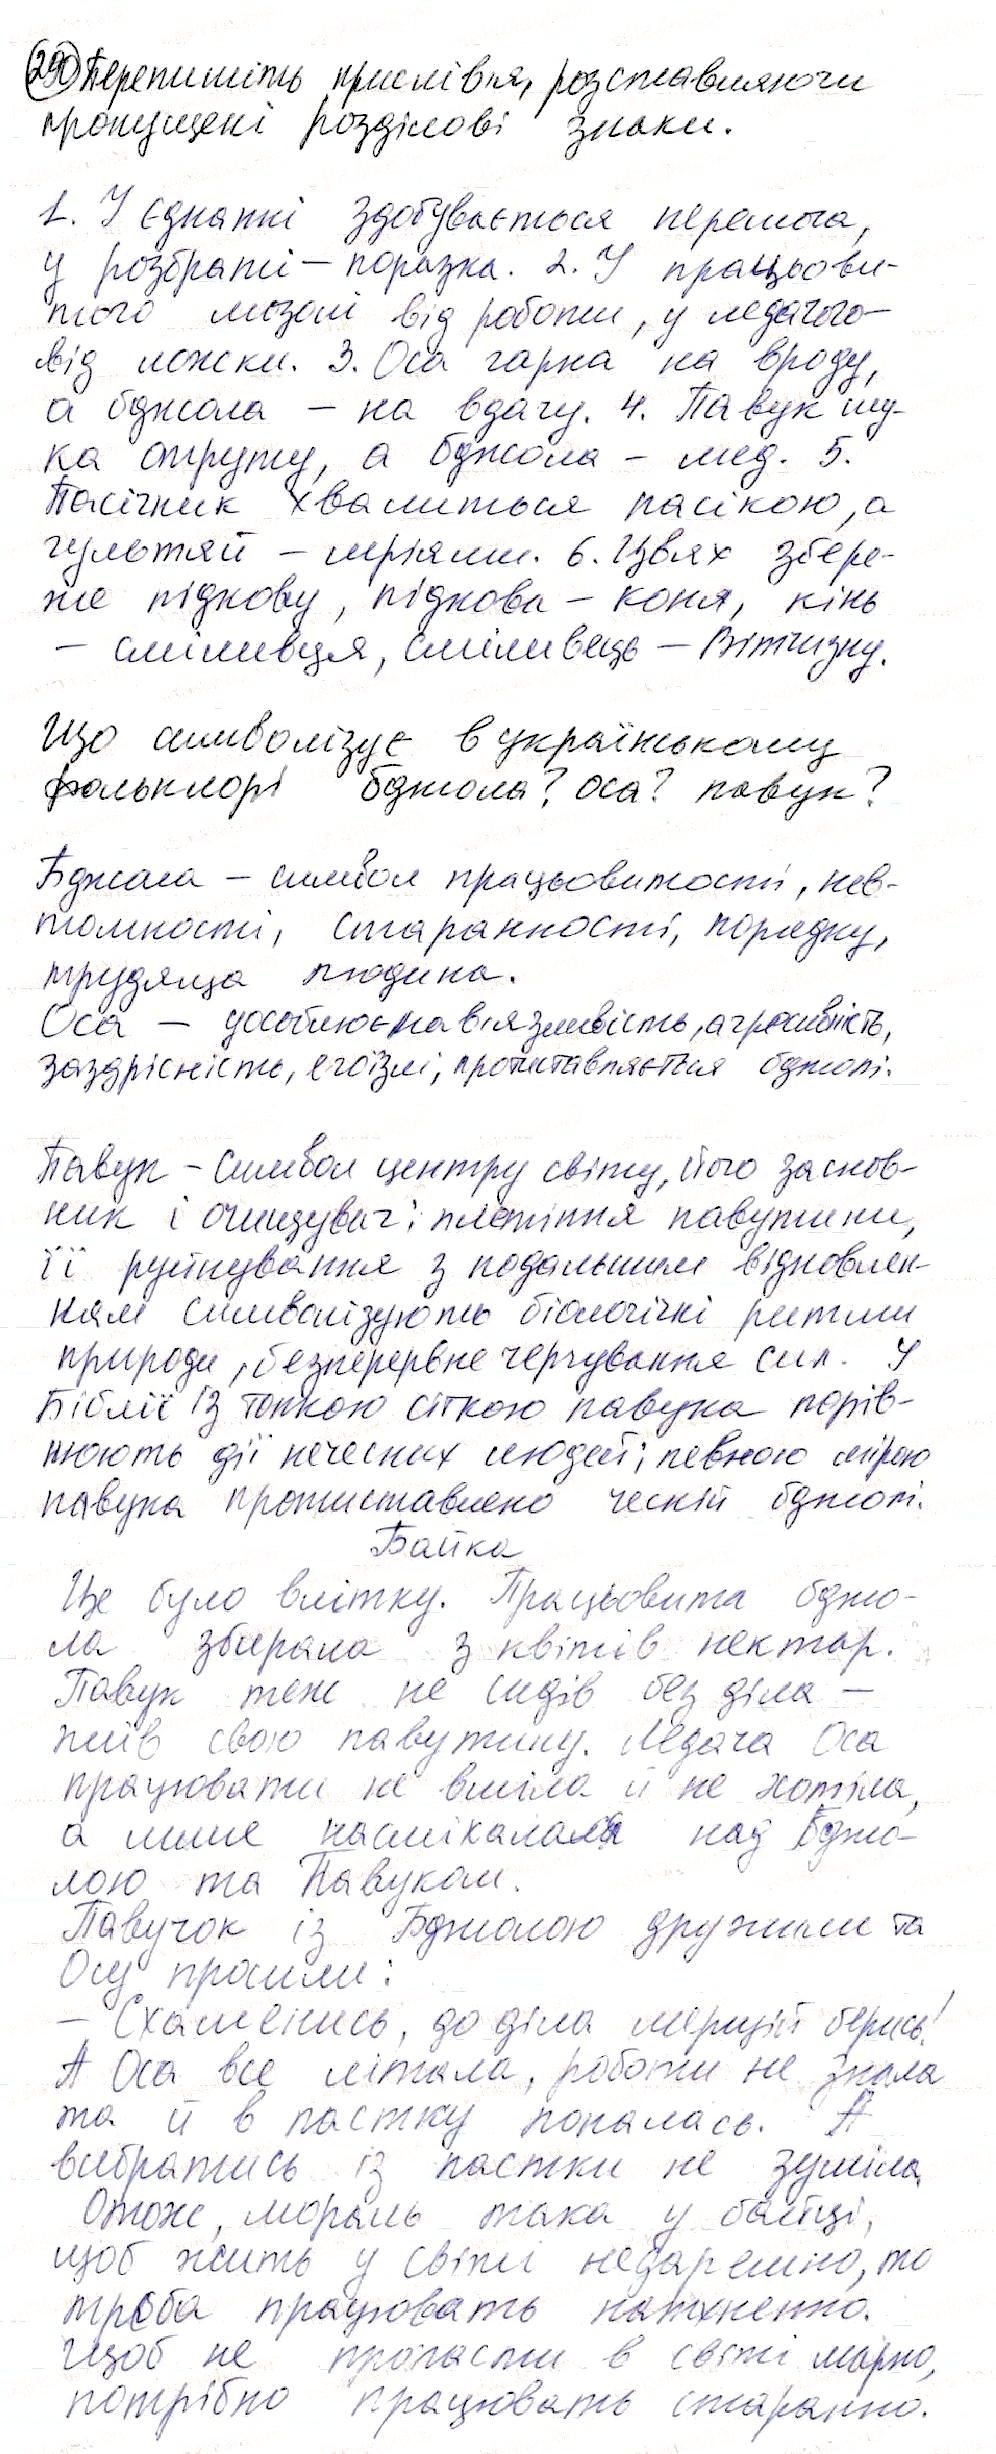 290 Перепишіть прислівя, розставляючи
пропущені розділові знаки.
1. У єднанні здобувається перемога,
у розбраті – поразка. 2. У працьови-
того мозолі від роботи, у ледачого –
від ложки. 3. Оса гарна на вроду,
а бджола – на вдачу. 4. Павук шу-
ка отруту, а бджола – мед. 5.
Пасічник хвалиться пасікою, а
гультяй – мріями. 6. Цвях збере-
же підкову, підкова – коня, кінь
– сміливця, сміливець – Вітчизну.
Що символізує в українському
фольклорі бджола? оса? павук?
Бджола – символ працьовитості, нев-
томності, старанності, порядку,
трудяща людина.
Оса – уособлює навіязливість, агресивність,
заздрісність, егоїзм, протиставляється бджолі.
Павук – символ центру світу, його заснов-
ник і очищувач; плетіння павутини,
її руйнування з подальшим відновлен-
ням символізують біологічні ритми
природи, безперервне чергування сил. У
Біблії із тонкою сіткою павука порів-
нюють дії нечесних людей; певною мірою
павука протиставлено чесній бджолі.
Байка
Це було влітку. Працьовита бджо-
ла збирала з квітів нектар.
Павук теж не сидів без діла –
плів свою павутину. Ледача Оса
працювати не вміла й не хотіла,
а лише насміхалася над Бджо-
лою та Павуком.
Павучок із Бджолою дружили та
Осу просили:
– Схаменись, до діла мерщій берись!
А Оса все літала, роботи не знала
та й в пастку попалась. А
вибратись із пастки не зуміла.
Отож, мораль така у байці,
щоб жить у світі недаремно, то
треба працювать натхненно.
Щоб не пропасти в світі марно,
потрібно працювать старанно.